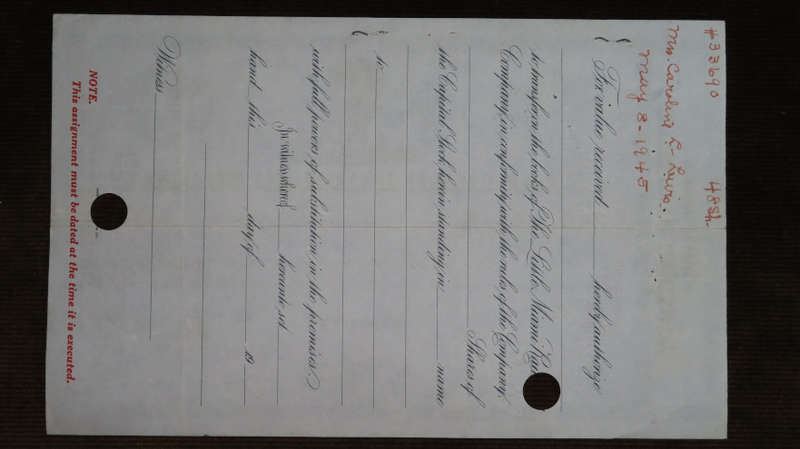 #33690 48Sh.
Mrs. Caroline L- Lewis.
May 8-1945
For value received hereby authorize
to transfer on the books of The Little Miami
Company, in conformity with the rules of the Company,
Shares of
the Capital Stock herein standing in name
to
with full powers of substitution in the premises.
In witness whereof hereunto set
hand this day of 19
Witness
NOTE.
This assignment must be dated at the time it is executed.